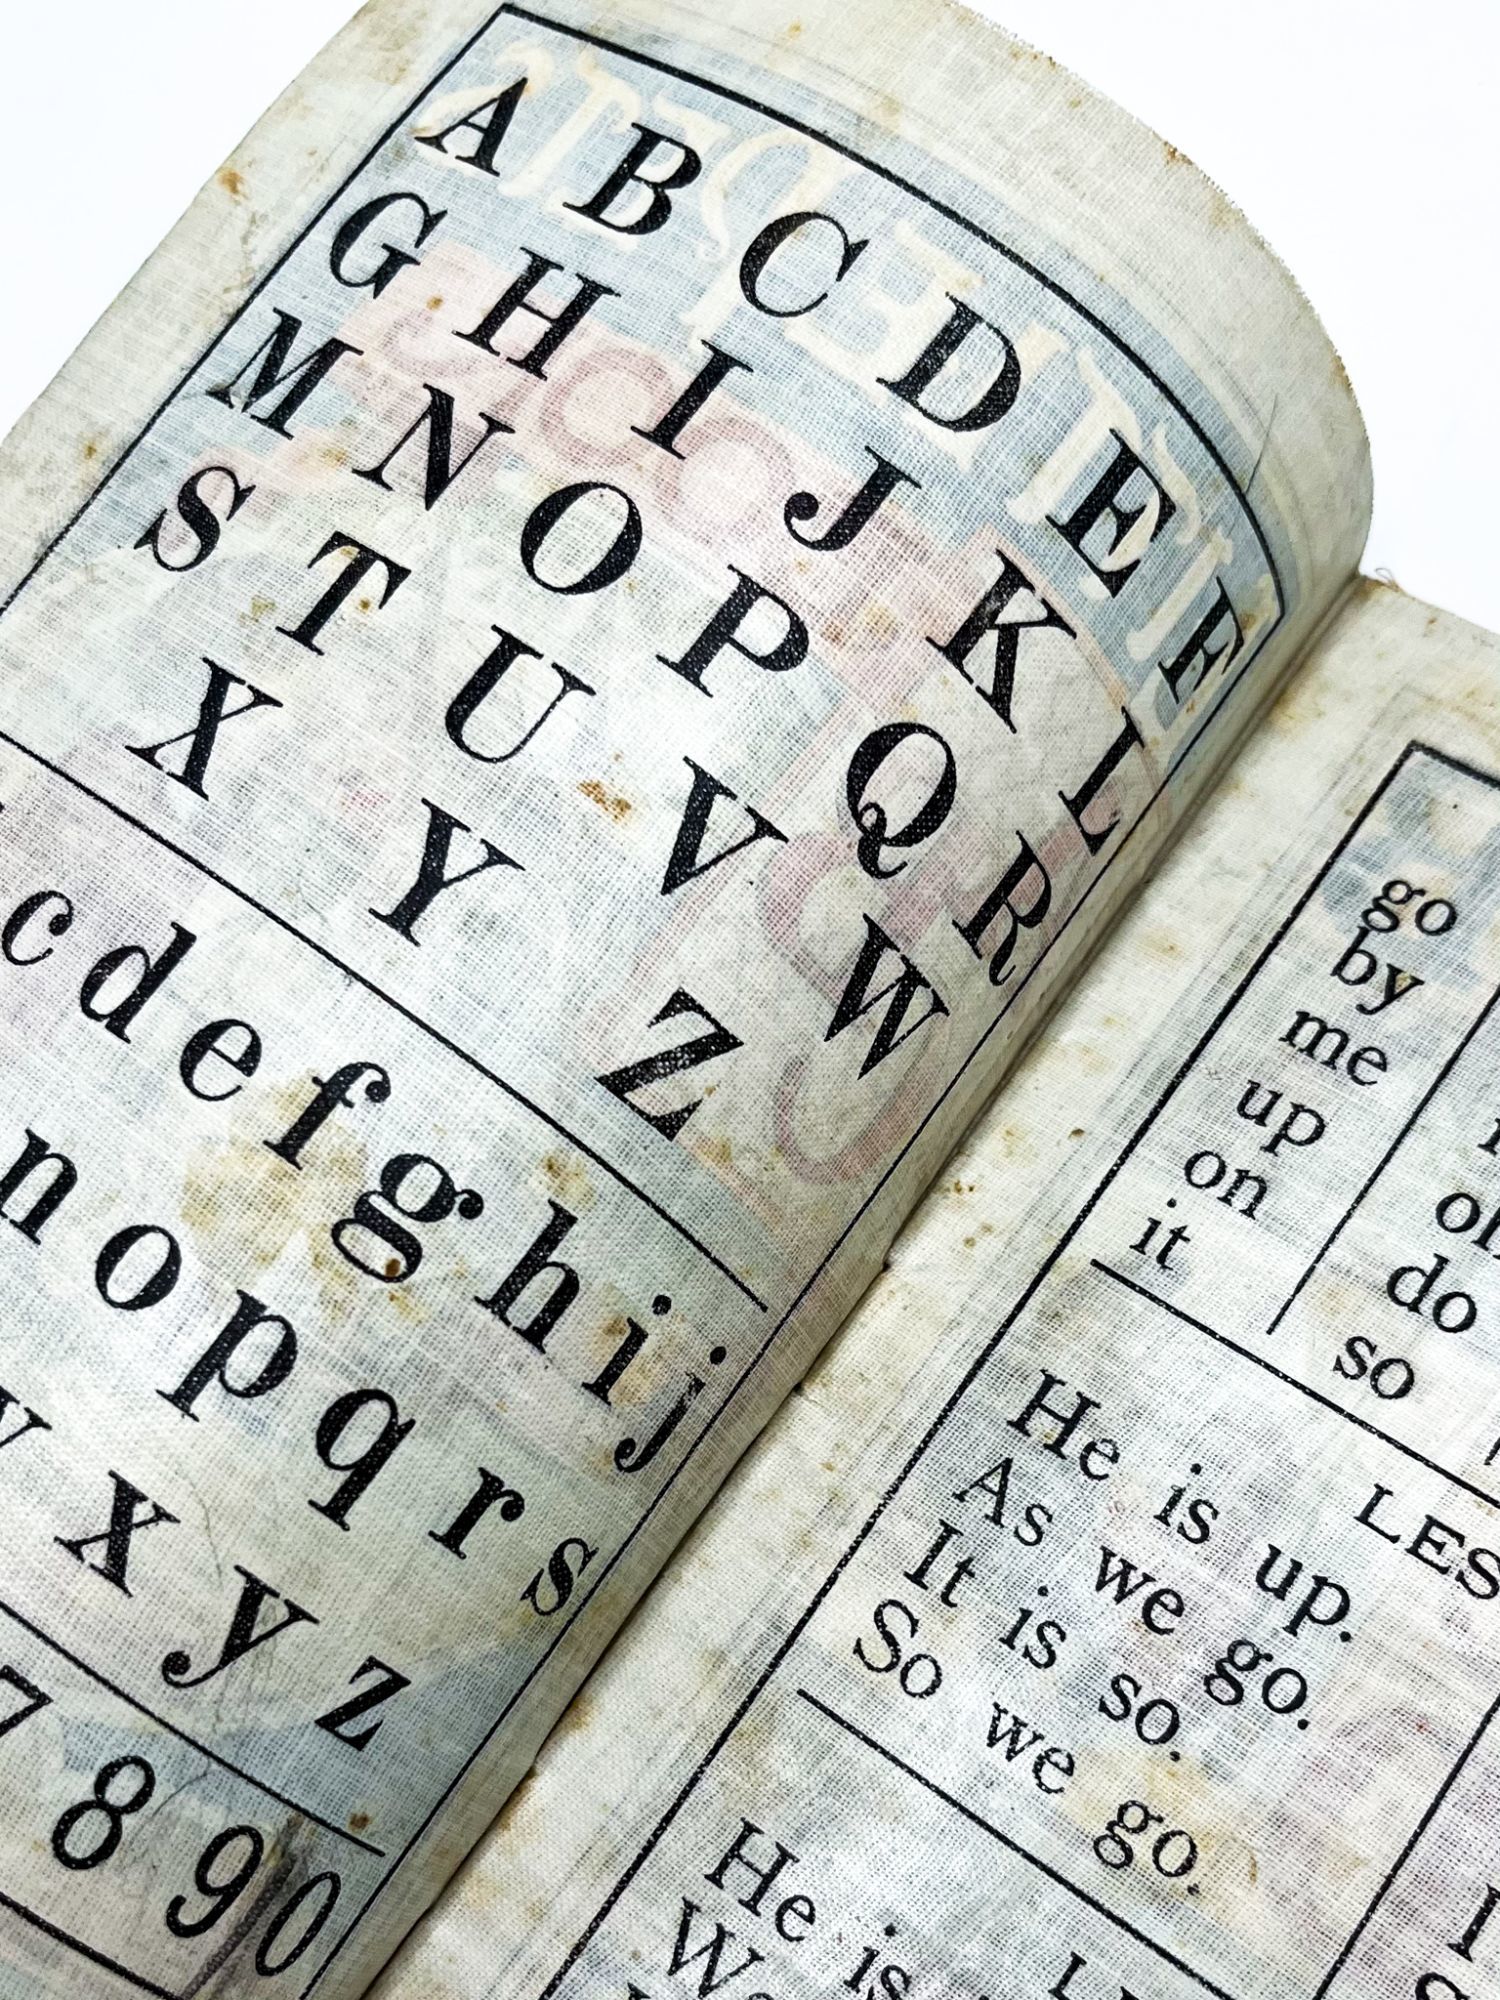 A B C D E F
G H I J K L
M N O P Q R
S T U V W
X Y Z
c d e f g h i j
n o p q r s
x y z
7 8 9 0
go
by
me
up
on
it
do
so
He is up.
As we go.
It is so.
So we go.
He is